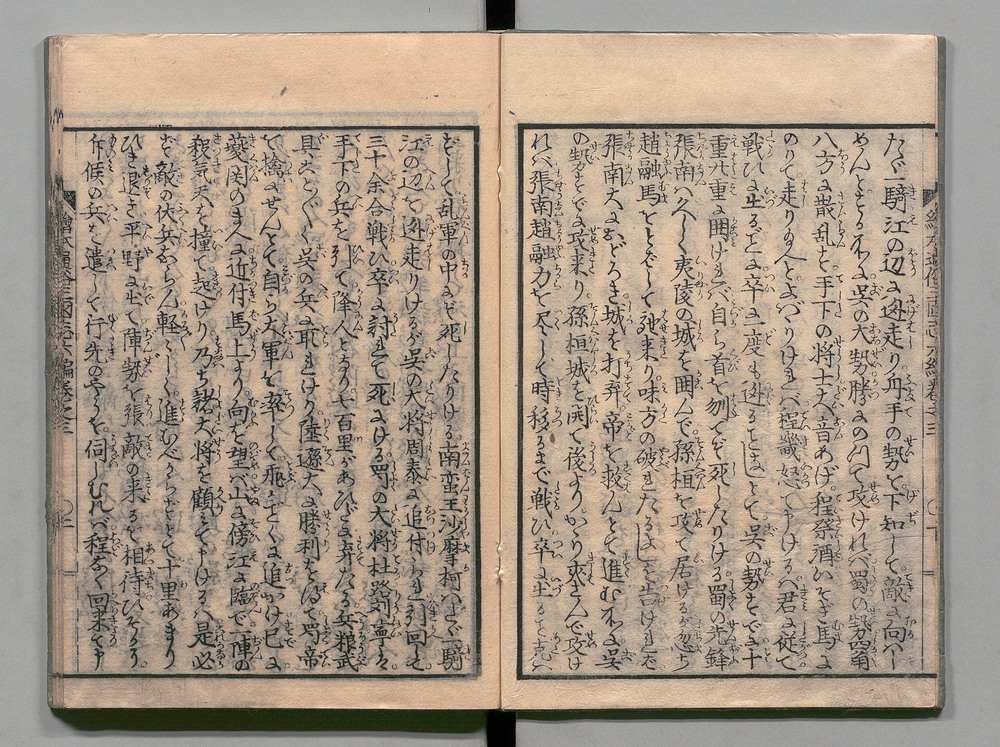 たゞ一騎江の辺に迯走り舟手の勢を下知して敵に向はし
めんとする所に呉の大勢勝に乗て攻けれバ蜀の勢四角
八方に散乱す手下の将士大音あげ程祭酒いそぎ馬に
のりて走りたまへとよバゝりけれバ程畿怒て申けるハ君に従て
戦ひに出るに卒に一度も迯ることなしとて呉の勢すでに十
重廿重に囲けれバ自ら首を刎てぞ死したりける蜀の先鋒
張南ハ久しく夷陵の城を囲んで孫桓を攻て居けるが忽ち
趙融馬をとばして馳来り味方の破れたるよしを告けれバ
張南大におどろき城を打弃帝を救んとて進む所に呉
の勢すでに攻来り孫桓城を開て後よりかゝり夾さんで攻け
れバ張南趙融力を尽して時移るまで戦ひ卒に出ること
繪本通俗三國志六編巻之三
ずして乱軍の中にぞ死したりける南蛮王沙摩柯ハたゞ一騎
江の辺を迯走りけるが呉の大将周泰に追付られ引回して
三十余合戦ひ卒に討れて死にける蜀の大将杜路劉寧ハ
手下の兵を引て降人となり七百里があひだに弃たる兵粮武
具ことごとく呉の兵に取れけり陸遜大に勝利を得て蜀帝
を擒にせんとて自ら大軍を率して飛がごとくに追つけ已に
夔関のまへに近付馬上より向を望バ山に傍江に臨て一陣の
殺気天を撞て起けり乃ち諸大将を顧て申けるハ是必
ず敵の伏兵あらん軽々しく進むべからずとて十里あまり
ひき退き平野に出て陣勢を張敵の来るを相待ひそかに
斥候の兵を遣して行先のやうを伺しむれバ程なく回来て申
繪本通俗三國志六編巻之三
〇二